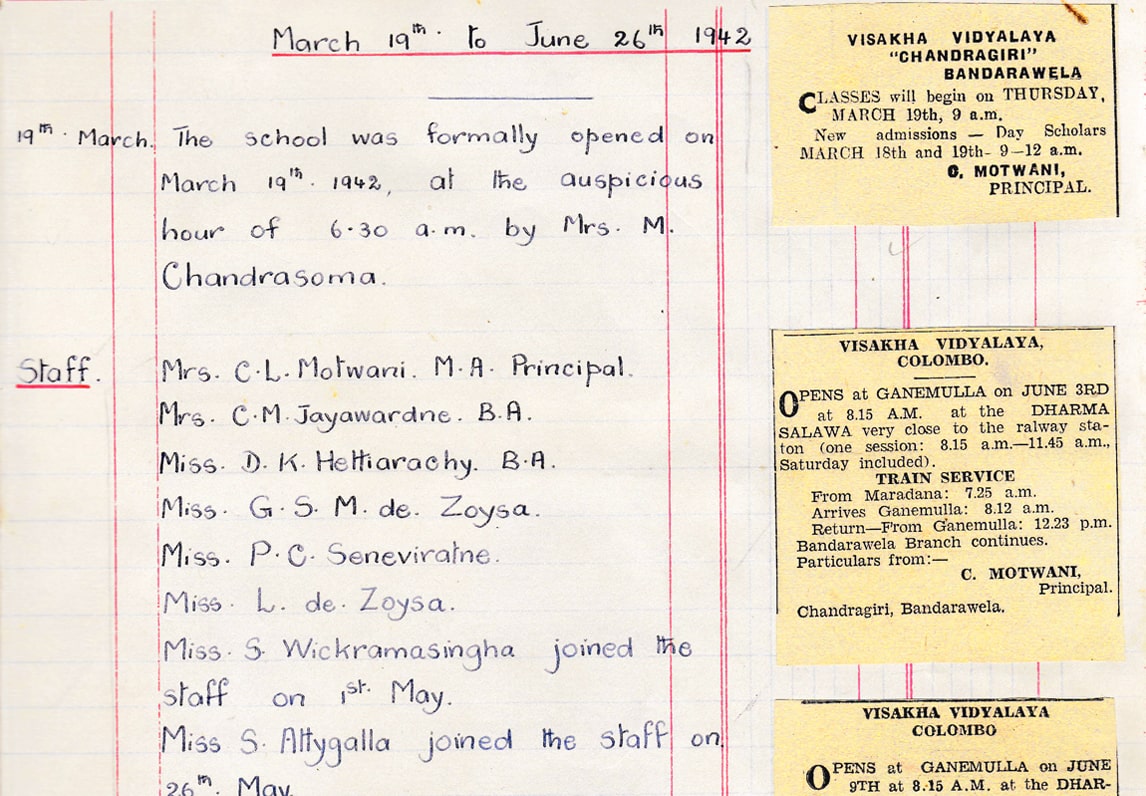 March 19th. to June 26th 1942
19th. March. The school was formally opened on
March 19th. 1942, at the auspicious
hour of 6·30 a.m. by Mrs. M.
Chandrasoma.
Staff. Mrs. C·L· Motwani. M·A· Principal.
Mrs. C·M· Jayawardne. B·A.
Miss. D. K. Hettiarachy. B·A.
Miss. G·S·M. de. Zoysa.
Miss. P·C· Seneviratne.
Miss. L. de. Zoysa.
Miss. S. Wickramasingha joined the
staff on 1st. May.
Miss S. Attygalla joined the staff on
26th. May.
VISAKHA VIDYALAYA
"CHANDRAGIRI"
BANDARAWELA
CLASSES will begin on THURSDAY,
MARCH 19th, 9 a.m.
New admissions — Day Scholars
MARCH 18th and 19th- 9—12 a.m.
C. MOTWANI,
PRINCIPAL.
VISAKHA VIDYALAYA,
COLOMBO.
OPENS at GANEMULLA on JUNE 3RD
at 8.15 A.M. at the DHARMA
SALAWA very close to the ralway sta-
ton (one session: 8.15 a.m.—11.45 a.m.,
Saturday included).
TRAIN SERVICE
From Maradana: 7.25 a.m.
Arrives Ganemulla: 8.12 a.m.
Return—From Ganemulla: 12.23 p.m.
Bandarawela Branch continues.
Particulars from:—
C. MOTWANI,
Principal.
Chandragiri, Bandarawela.
VISAKHA VIDYALAYA
COLOMBO
OPENS at GANEMULLA on JUNE
9TH at 8.15 A.M. at the DHAR-